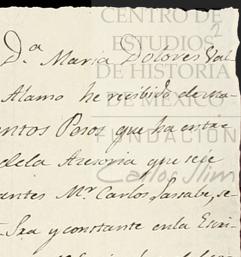 CENTRO DE
ESTUDIOS
DE HISTORIA
DE MÉXICO
FUNDACIÓN
Carlos Slim
2
D.ª Maria Dolores Val
Alamo he recibido de ma
entos Pesos que ha entre
dela Asesoria que se
antes M.r Carlos Lassabe, se
Sra y constante enla Escri